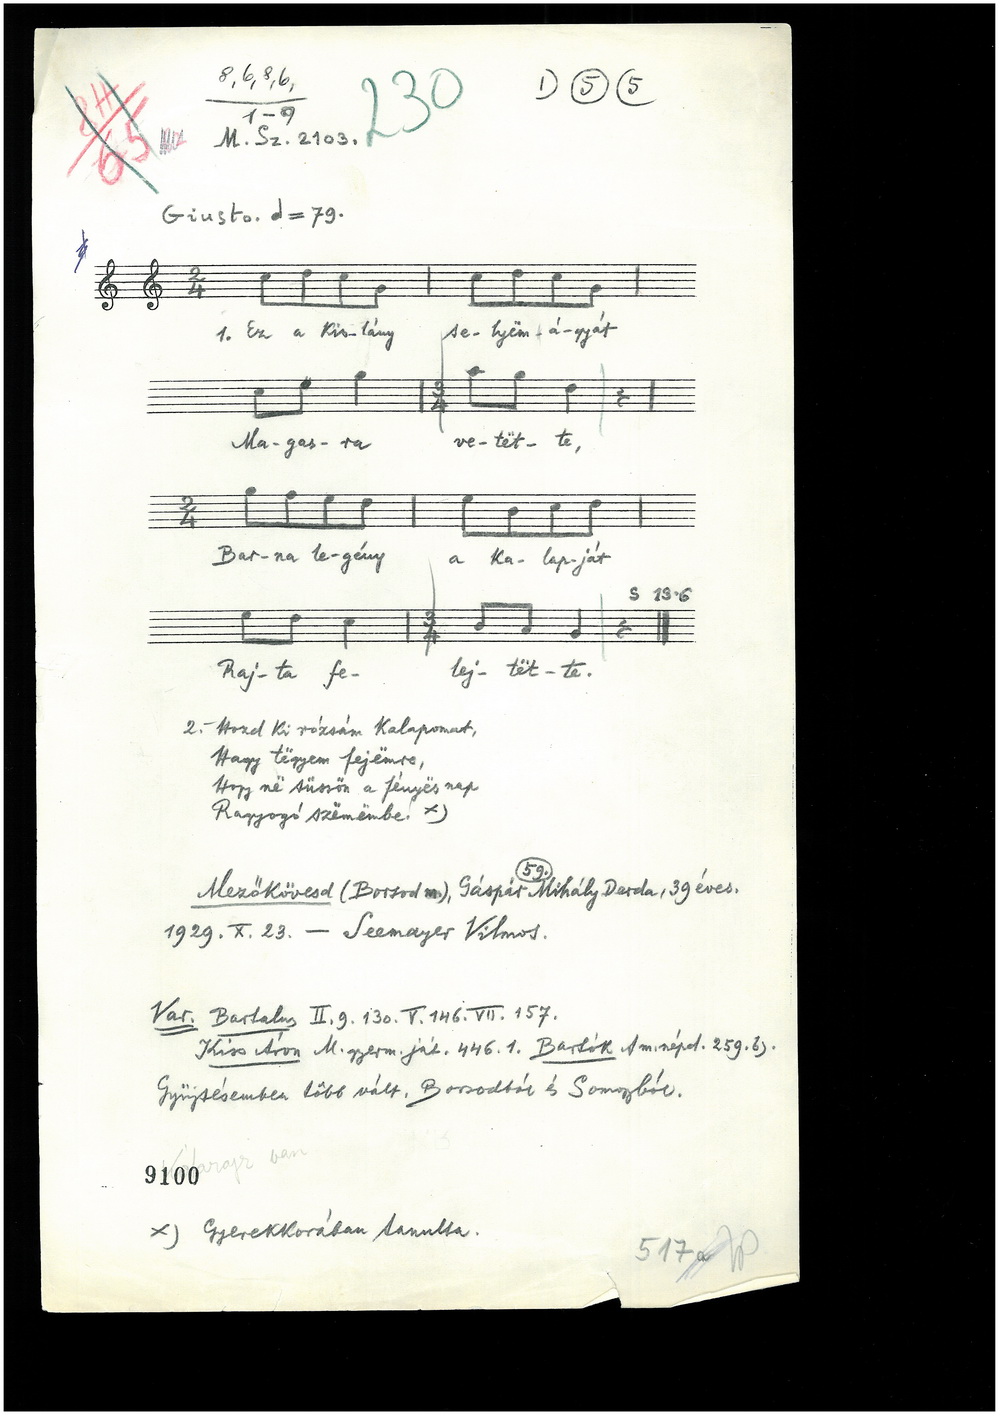 8,6,8,6,
1-9
M. Sz. 2103.
230
D 5 5
Giusto. d = 79.
2/4
1. Ez a kis-lány se-lyëm-á-gyát
3/4
Ma-gas-ra ve-tët-te,
2/4
Bar-na le-gény a ka-lap-ját
S 13-6
3/4
Raj-ta fe-lej-tët-te.
2.- Hozd ki rózsám kalapomat,
Hagy tëgyem fejëmre,
Hogy në süssön a fényës nap
Ragyogó szëmëmbe. x)
59.
Mezőkövesd (Borsod m.), Gáspár Mihály Darda, 39 éves.
1929. X. 23. — Seemayer Vilmos.
Var. Bartalus II. 9. 130. V. 146. VII. 157.
Kiss Áron M. gyerm. ját. 446. 1. Bartók A m. népd. 259. b).
Gyüjtésemben több vált. Borsodból és Somogyból.
9100
x) Gyerekkorában tanulta.
517a